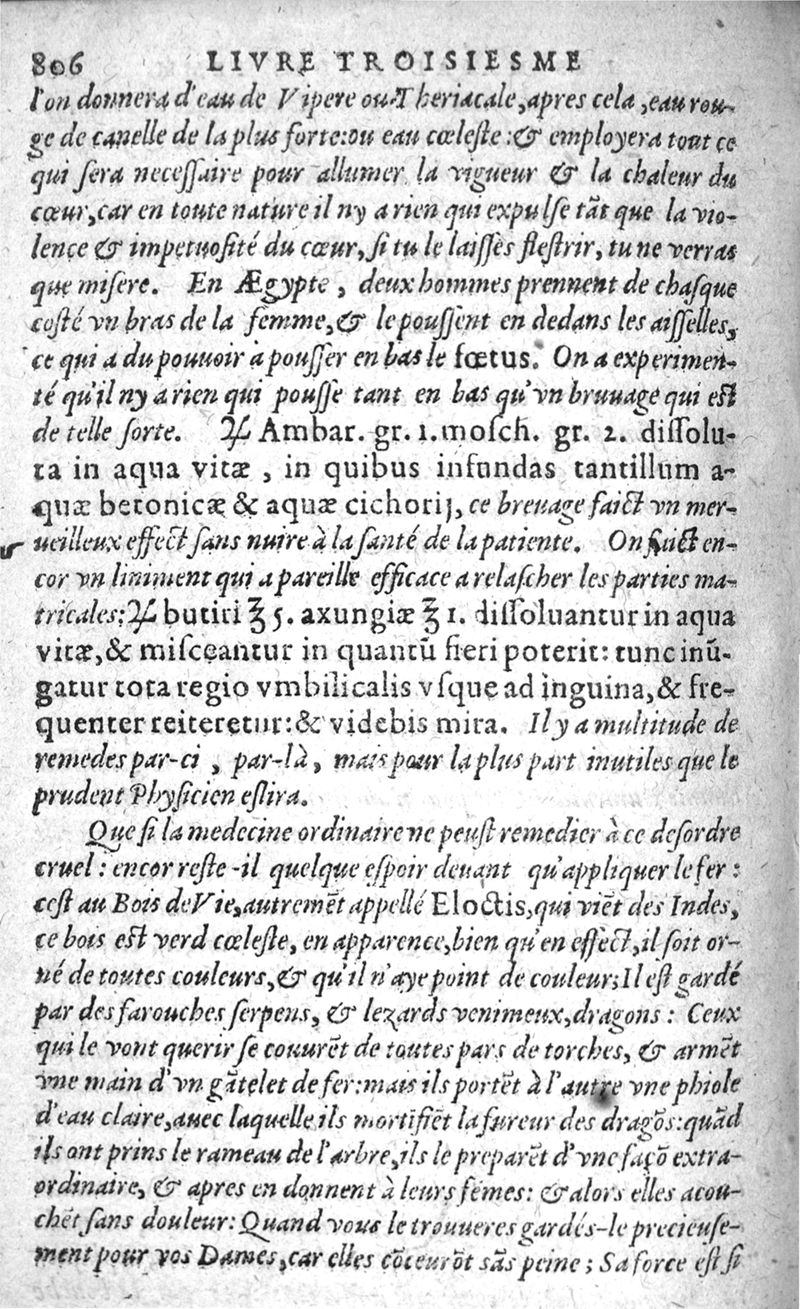 806 LIVRE TROISIESME
l'on donnera d'eau de Vipere ou Theriacale, apres cela, eau rou-
ge de canelle de la plus forte: ou eau cœleste: & employera tout ce
qui ſera neceſſaire pour allumer la vigueur & la chaleur du
cœur, car en toute nature il ny a rien qui expulſe tãt que la vio-
lence & impetuoſité du cœur, ſi tu le laiſſes fleſtrir, tu ne verras
que miſere. En Ægypte, deux hommes prennent de chaſque
coſté vn bras de la femme, & le pouſſent en dedans les aiſſelles,
ce qui a du pouuoir a pouſſer en bas le fœtus. On a experimen-
té qu'il ny a rien qui pouſſe tant en bas qu'vn bruuage qui est
de telle ſorte. ♃ Ambar. gr. 1. moſch. gr. 2. diſſolu-
ta in aqua vitæ, in quibus infundas tantillum a-
quæ betonicæ & aquæ cichorij, ce breuage faict vn mer-
ueilleux effect ſans nuire à la ſanté de la patiente. On faict en-
cor vn liniment qui a pareille efficace a relaſcher les parties ma-
tricales: ♃ butiri ℥ 5. axungiæ ℥ 1. diſſoluantur in aqua
vitæ, & miſceantur in quantũ fieri poterit: tunc inũ-
gatur tota regio vmbilicalis vſque ad inguina, & fre-
quenter reiteretur: & videbis mira. Il y a multitude de
remedes par-ci, par-là, mais pour la plus part inutiles que le
prudent Phyſicien eſlira.
Que ſi la medecine ordinaire ne peuſt remedier à ce deſordre
cruel: encor reſte-il quelque eſpoir deuant qu'appliquer le fer:
ceſt au Bois de Vie, autremẽt appellé Eloctis, qui viẽt des Indes,
ce bois est verd cœleſte, en apparence, bien qu'en effect, il ſoit or-
né de toutes couleurs, & qu'il n'aye point de couleur; Il eſt gardé
par des farouches ſerpens, & lezards venimeux, dragons: Ceux
qui le vont querir ſe couurẽt de toutes pars de torches, & armẽt
vne main d'vn gãtelet de fer: mais ils portẽt à l'autre vne phiole
d'eau claire, auec laquelle ils mortifiẽt la fureur des dragõs: quãd
ils ont prins le rameau de l'arbre, ils le preparẽt d'vne façõ extra-
ordinaire, & apres en donnent à leurs fẽmes: & alors elles acou-
chẽt ſans douleur: Quand vous le trouueres gardés-le precieuſe-
ment pour vos Dames, car elles cõceurõt sãs peine; Sa force eſt ſi